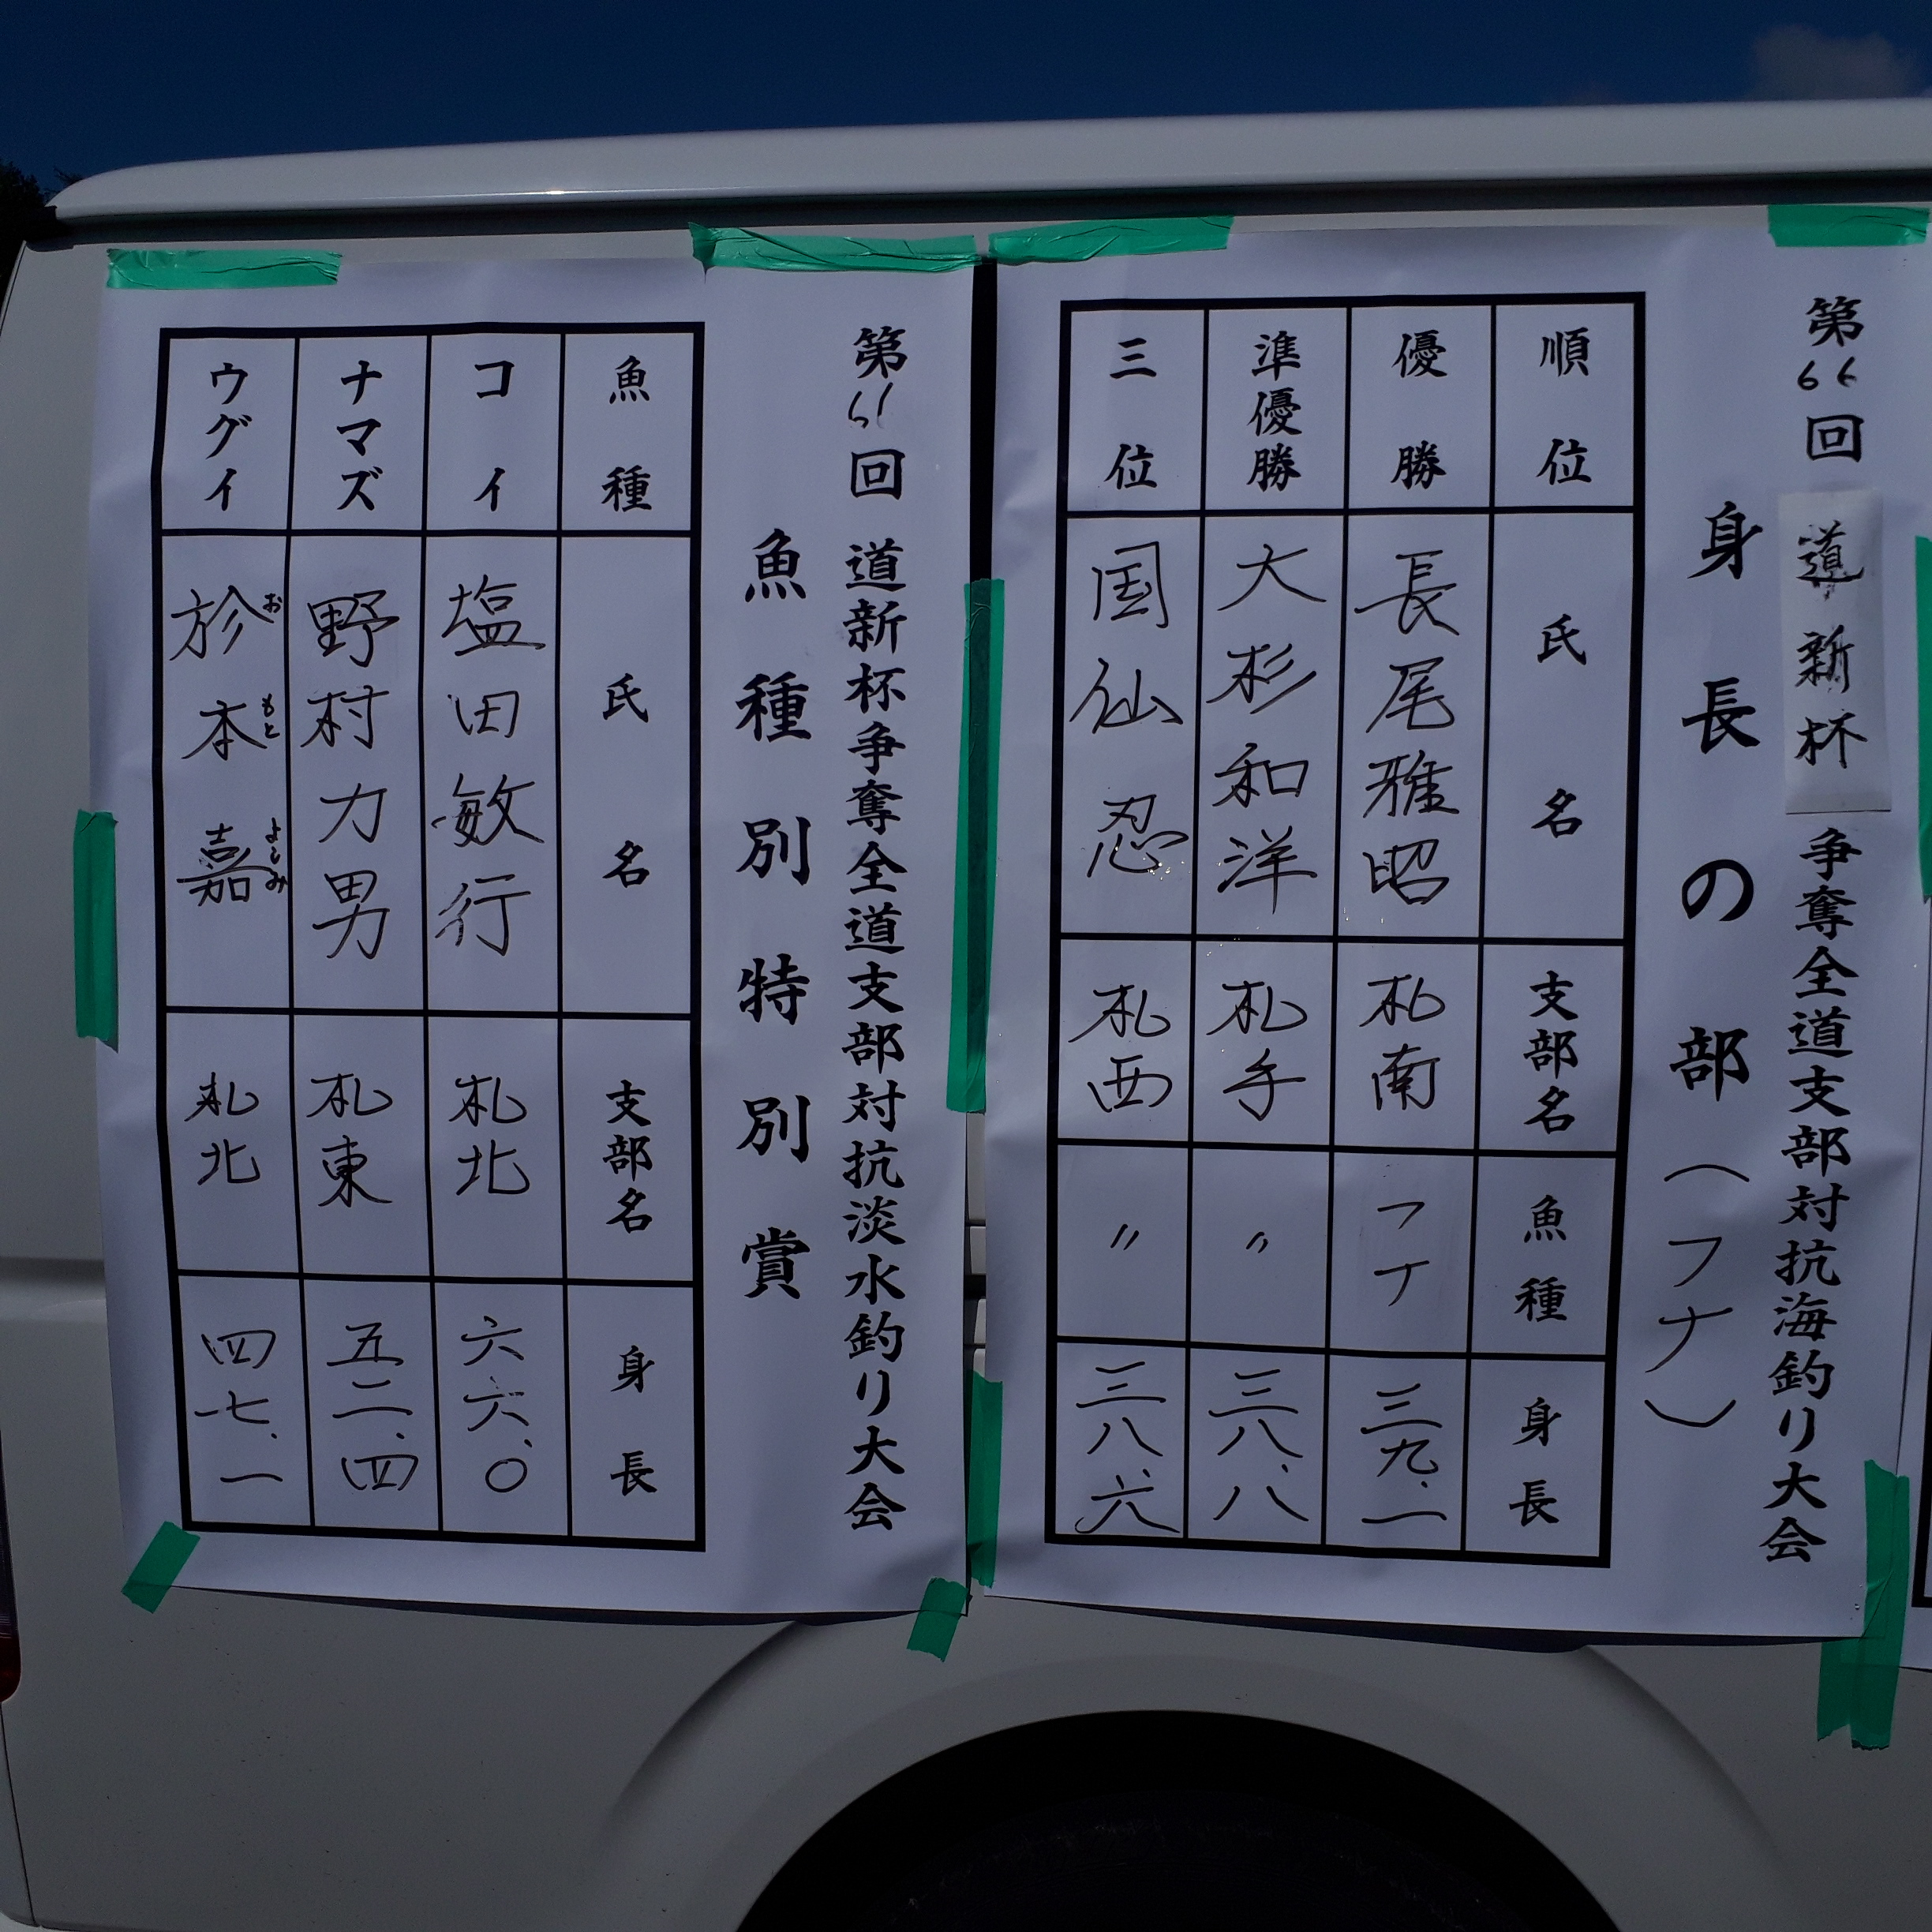 第66回 道新杯 争奪全道支部対抗海釣り大会
身長の部(フナ)
順位 氏名 支部名 魚種 身長
優勝 長尾雅昭 札南 フナ 三九.一
準優勝 大杉和洋 札手 〃 三八.八
三位 国仙忍 札西 〃 三八.六
第61回 道新杯争奪全道支部対抗淡水釣り大会
魚種別特別賞
魚種 氏名 支部名 身長
コイ 塩田敏行 札北 六六.〇
ナマズ 野村力男 札東 五二.四
ウグイ 於本嘉 おもとよしみ 札北 四七.一